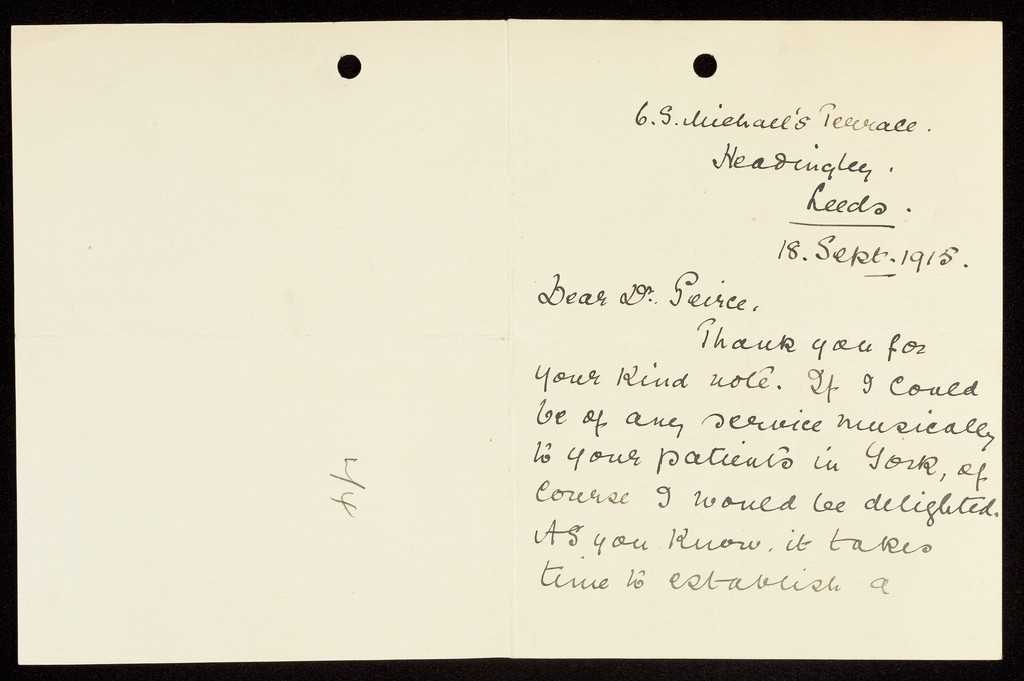 6. S. Michael's Terrace.
Headingley.
Leeds.
18. Sept. 1915.
Dear Dr. Peirce.
Thank you for
your kind note. If I could
be of any service musically
to your patients in York, of
course I would be delighted.
As you know, it takes
time to establish a